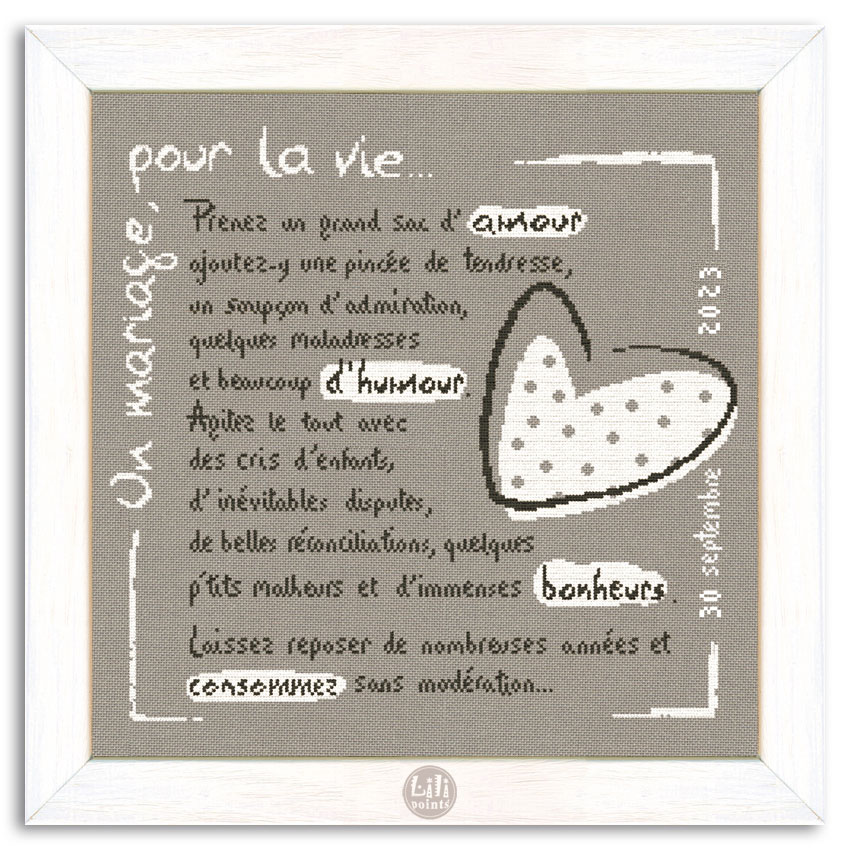 Un mariage,
pour la vie...
Prenez un grand sac d'amour
ajoutez-y une pincée de tendresse,
un soupçon d'admiration,
quelques maladresses
et beaucoup d'humour.
Agitez le tout avec
des cris d'enfants,
d'inévitables disputes,
de belles réconciliations, quelques
p'tits malheurs et d'immenses bonheurs.
Laissez reposer de nombreuses années et
consommez sans modération...
30 septembre 2023
Lili
points